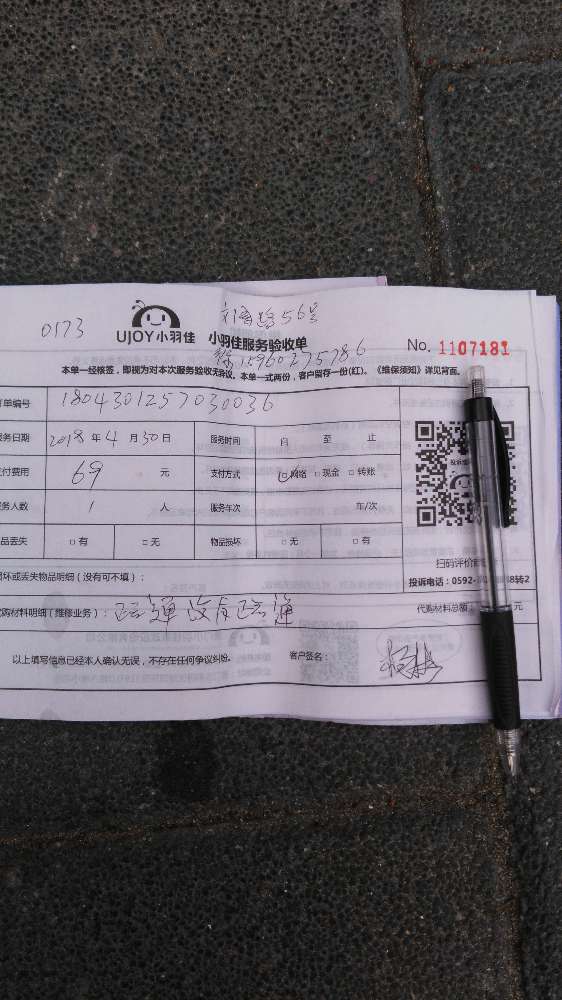 0173
UJOY小羽佳
小羽佳服务验收单
No. 1107181
15960275786
本单一经核签，即视为对本次服务验收无异议。本单一式两份，客户留存一份(红)。《维保须知》详见背面。
订单编号 1804301257030036
服务日期 2018 年 4 月 30 日 服务时间 自 至 止
支付费用 69 元 支付方式 □网络 □现金 □转账
服务人数 1 人 服务车次 车/次
□有 □无 物品损坏 □无 □有
扫码评价
损坏或丢失物品明细（没有可不填）：
投诉电话：0592- 8转2
代购材料明细（维修业务）： 疏通 没有疏通 代购材料总额： 元
以上填写信息已经本人确认无误，不存在任何争议纠纷。 客户签名：